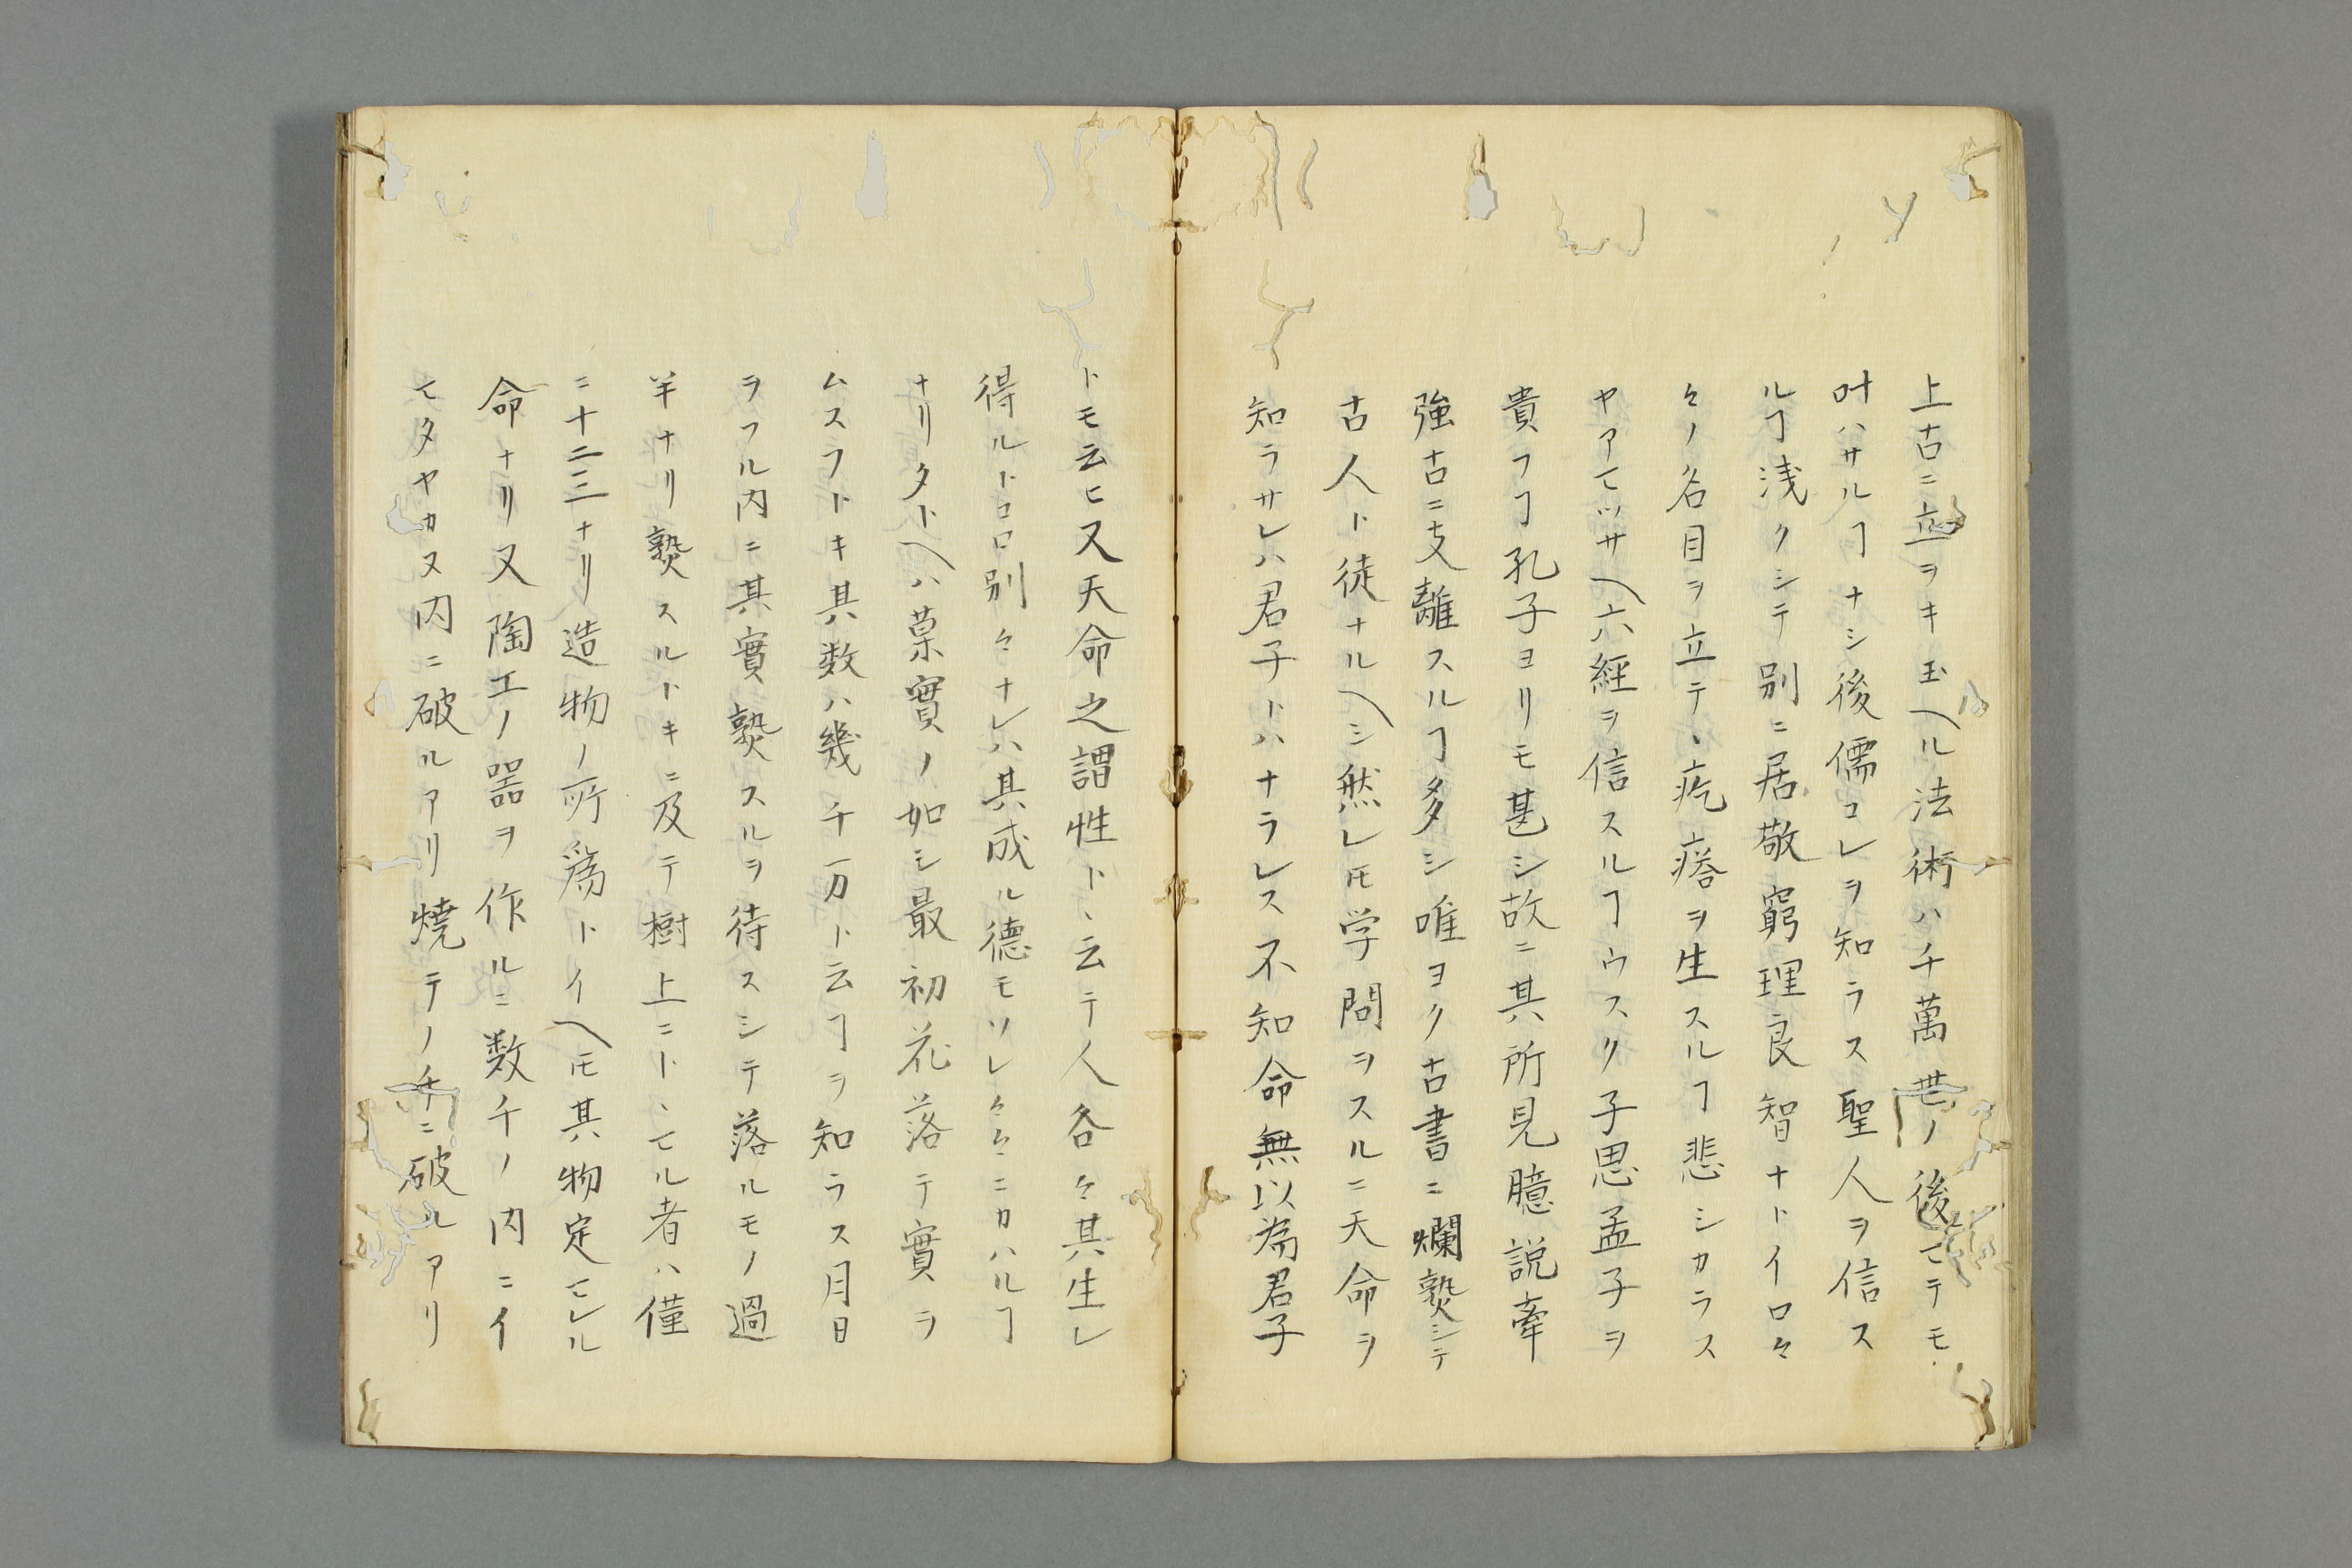 上古ニ立ヲキ玉ヘル法術ハ千萬世ノ後マテモ
叶ハサルヿナシ後儒コレヲ知ラス聖人ヲ信ス
ルヿ浅クシテ別ニ居敬窮理良智ナトイロ々
々ノ名目ヲ立テヽ疙瘩ヲ生スルヿ悲シカラス
ヤアマツサヘ六経ヲ信スルヿウスク子思孟子ヲ
貴フヿ孔子ヨリモ甚シ故ニ其所見臆説牽
強古ニ支離スルヿ多シ唯ヨク古書ニ爛熟シテ
古人ト徒ナルヘシ然レ𪜈学問ヲスルニ天命ヲ
知ラサレハ君子トハナラレス不知命無以為君子
トモ云ヒ又天命之謂性トヽ云テ人各々其生レ
得ルトコロ別々ナレハ其成ル德モソレ々々ニカハルヿ
ナリタトヘハ菓實ノ如シ最初花落テ實ラ
ムスフトキ其数ハ幾千万ト云ヿヲ知ラス月日
ヲフル内ニ其實熟スルヲ待スシテ落ルモノ過
半ナリ熟スルトキニ及テ樹上ニトヽマル者ハ僅
ニ十二三ナリ造物ノ所爲トイヘ𪜈其物定マレル
命ナリ又陶工ノ器ヲ作ルニ数千ノ内ニイ
マタヤカヌ内ニ破ルアリ焼テノチニ破ルアリ